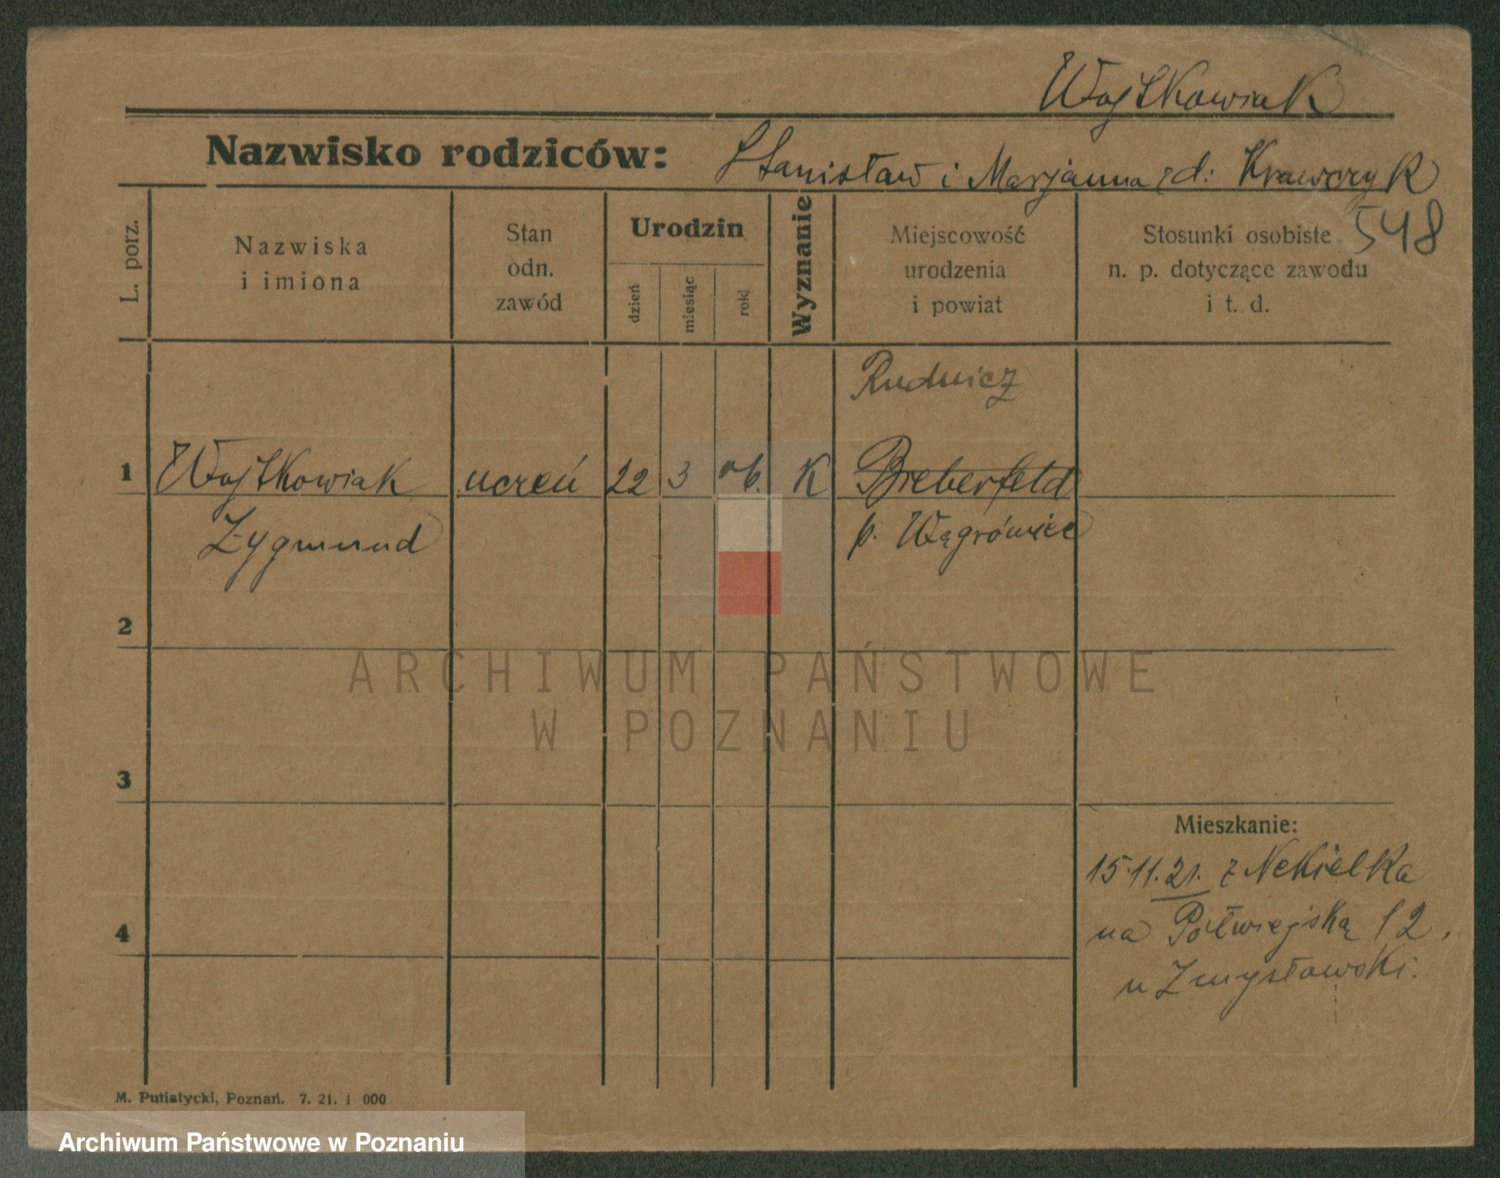 Wojtkowiak
Nazwisko rodziców: Stanisław i Marjanna zd: Krawczyk
548
L. porz.
Nazwiska
i imiona
Stan
odn.
zawód
Urodzin
dzień
miesiąc
rok
Wyznanie
Miejscowość
urodzenia
i powiat
Stosunki osobiste
n. p. dotyczące zawodu
i t. d.
Rudnicz
1 Wojtkowiak uczeń 22 3 06. K Bieberfeld
Zygmund p. Wągrówiec
2
ARCHIWUM PAŃSTWOWE
W POZNANIU
3
Mieszkanie:
15.11.21. z Nekielka
na Półwiejską 12.
4
u Zmysłowski.
M. Putiatycki, Poznań. 7. 21. 1 000
Archiwum Państwowe w Poznaniu